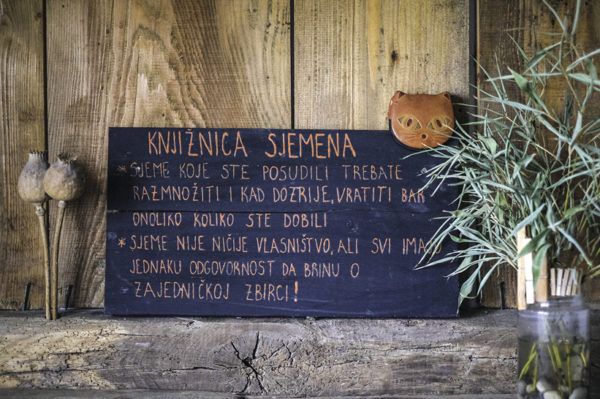 KNJIŽNICA SJEMENA
* SJEME KOJE STE POSUDILI TREBATE
RAZMNOŽITI I KAD DOZRIJE, VRATITI BAR
ONOLIKO KOLIKO STE DOBILI
* SJEME NIJE NIČIJE VLASNIŠTVO, ALI SVI IMAJU
JEDNAKU ODGOVORNOST DA BRINU O
ZAJEDNIČKOJ ZBIRCI!